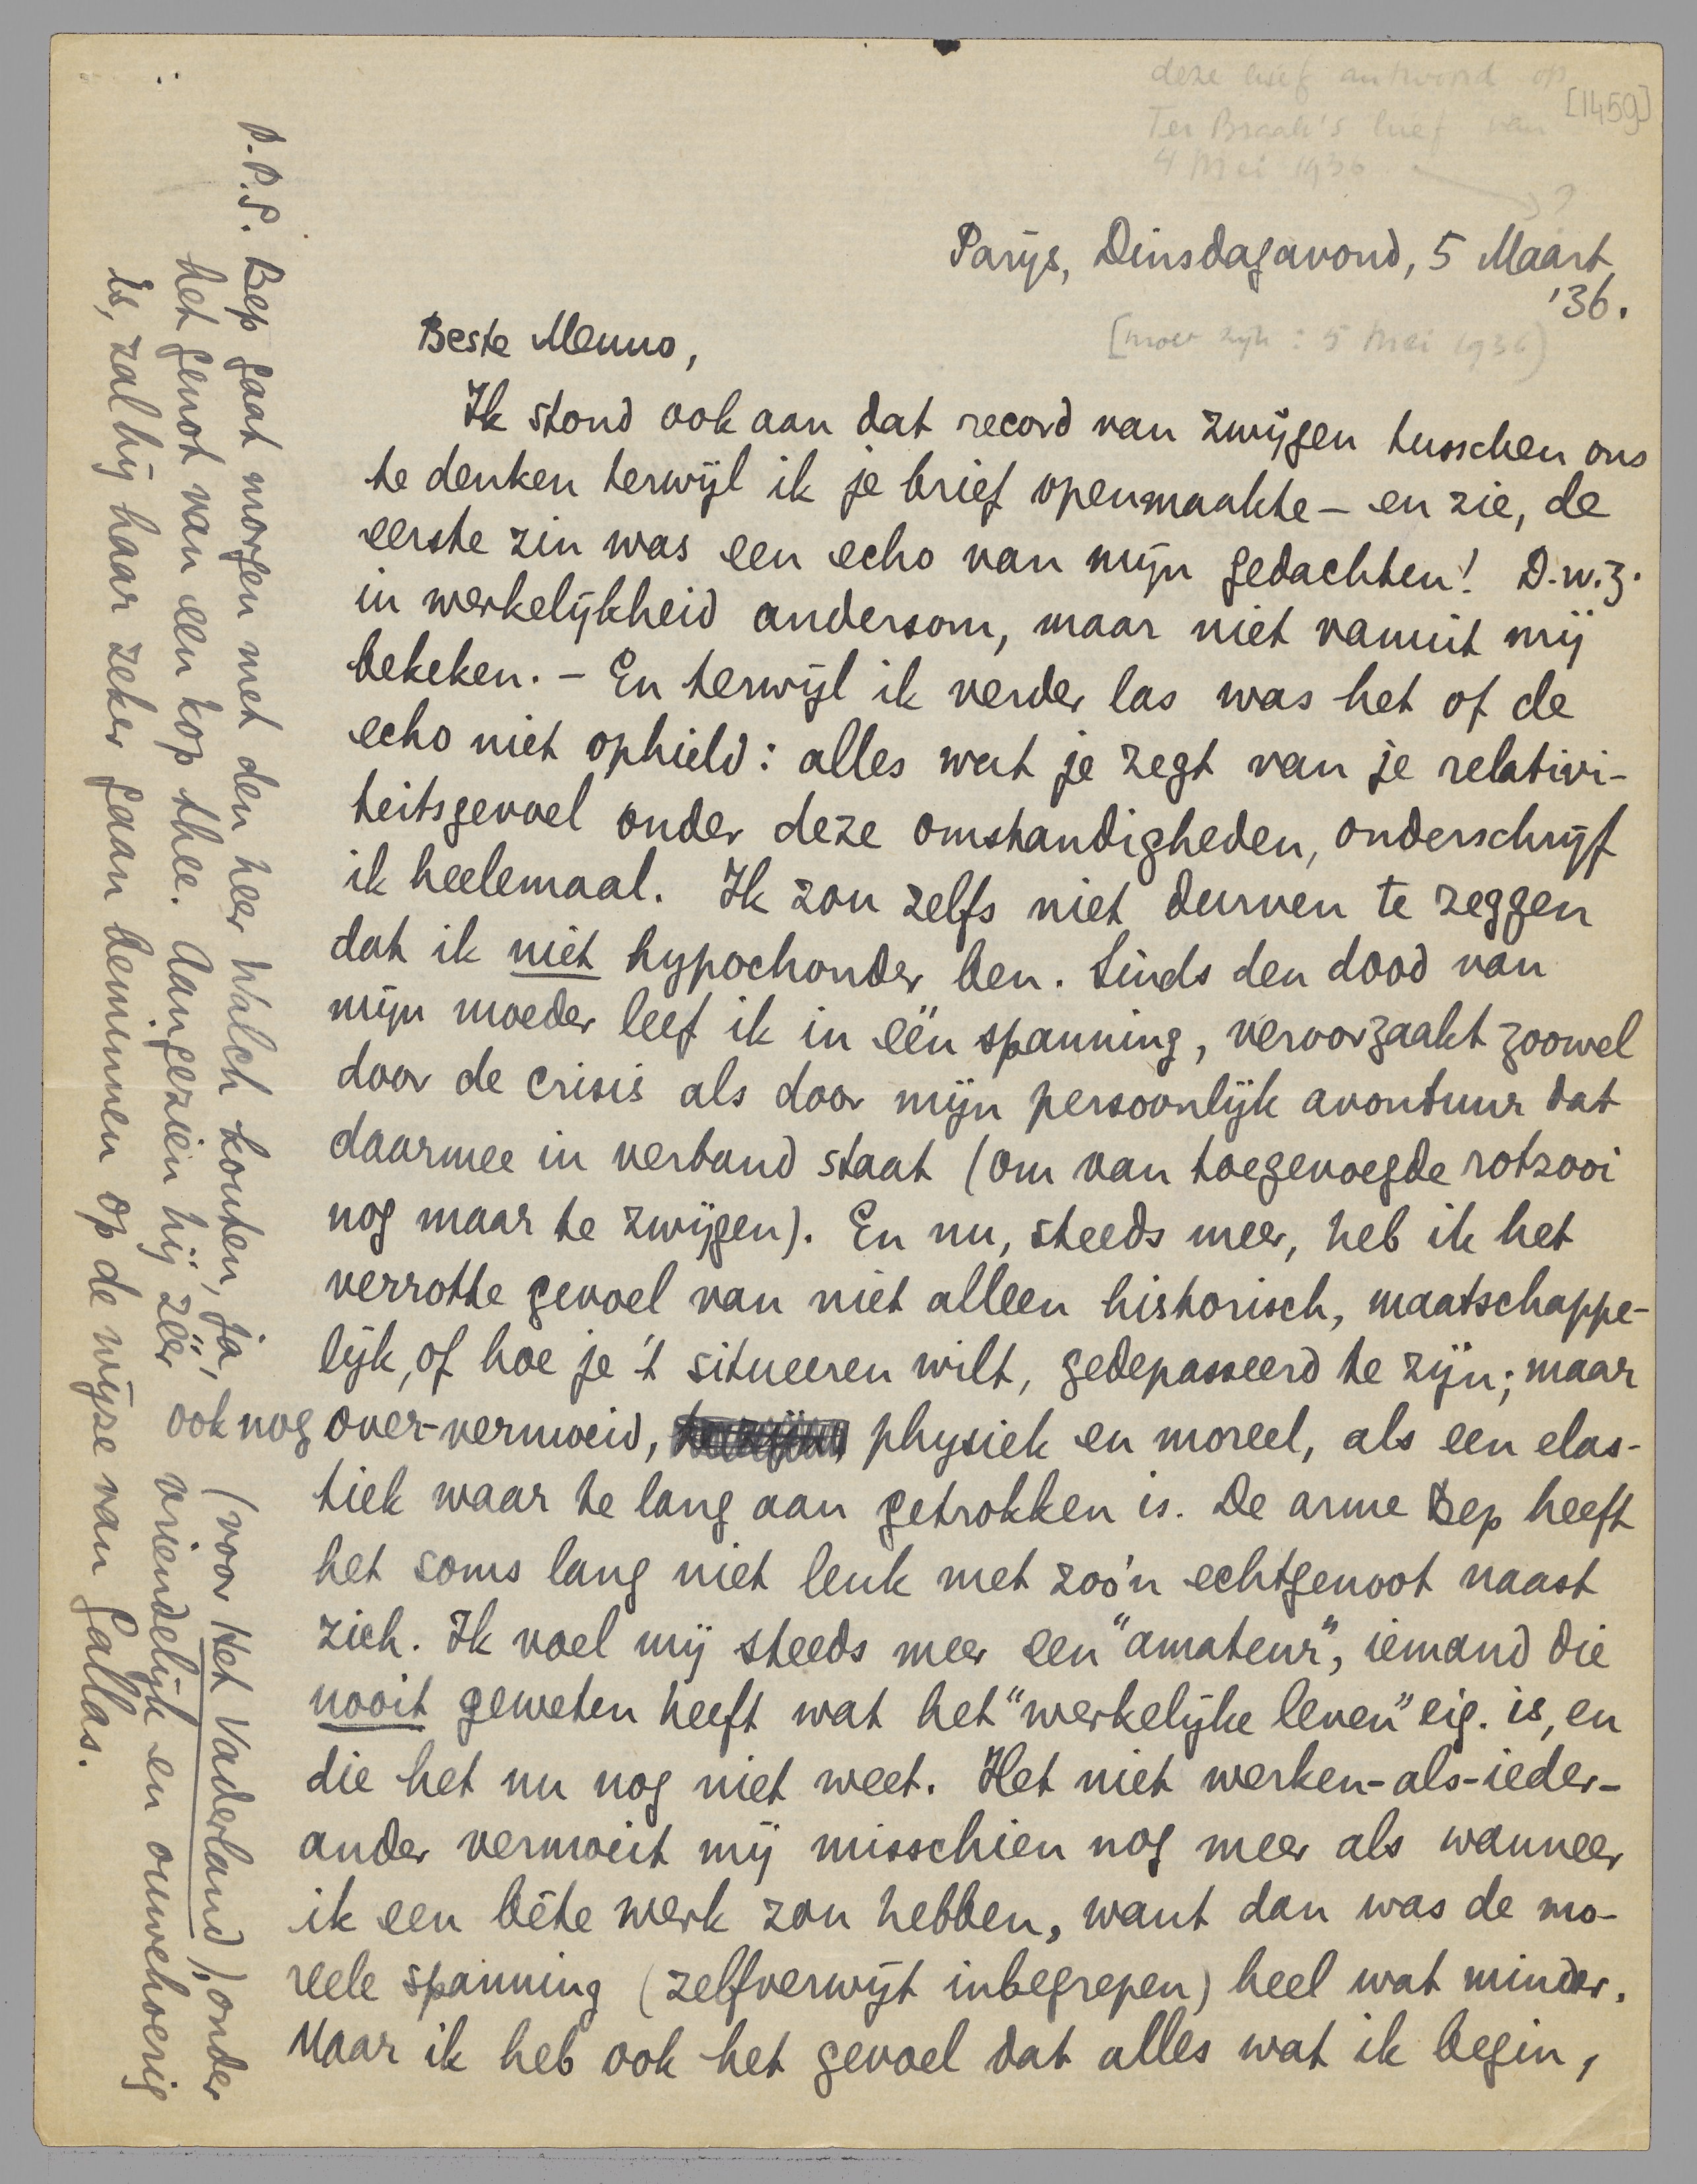 deze brief antwoord op
Ter Braak's brief van
4 Mei 1936
?
[1459]
Parijs, Dinsdagavond, 5 Maart
'36.
[moet zijn: 5 Mei 1936]
Beste Menno,
Ik stond ook aan dat record van zwijgen tusschen ons
te denken terwijl ik je brief openmaakte – en zie, de
eerste zin was een echo van mijn gedachten! D.w.z.
in werkelijkheid andersom, maar niet vanuit mij
bekeken. – En terwijl ik verder las was het of de
echo niet ophield: alles wat je zegt van je relativi-
teitsgevoel onder deze omstandigheden, onderschrijf
ik heelemaal. Ik zou zelfs niet durven te zeggen
dat ik niet hypochonder ben. Sinds den dood van
mijn moeder leef ik in één spanning, veroorzaakt zoowel
door de crisis als door mijn persoonlijk avontuur dat
daarmee in verband staat (om van toegevoegde rotzooi
nog maar te zwijgen). En nu, steeds meer, heb ik het
verrotte gevoel van niet alleen historisch, maatschappe-
lijk, of hoe je 't situeeren wilt, gedepasseerd te zijn; maar
ook nog over-vermoeid, physiek en moreel, als een elas-
tiek waar te lang aan getrokken is. De arme Bep heeft
het soms lang niet leuk met zoo'n echtgenoot naast
zich. Ik voel mij steeds meer een "amateur", iemand die
nooit geweten heeft wat het "werkelijke leven" eig. is, en
die het nu nog niet weet. Het niet werken-als-ieder-
ander vermoeit mij misschien nog meer als wanneer
ik een bête werk zou hebben, want dan was de mo-
reele spanning (zelfverwijt inbegrepen) heel wat minder.
Maar ik heb ook het gevoel dat alles wat ik begin,
P.P.S. Bep gaat morgen met den heer Walch kouten, ja, (voor Het Vaderland), onder
het genot van een kop thee. Aangezien hij zéér vriendelijk en ouwehoerig
is, zal hij haar zeker gaan beminnen op de wijze van Gallas.